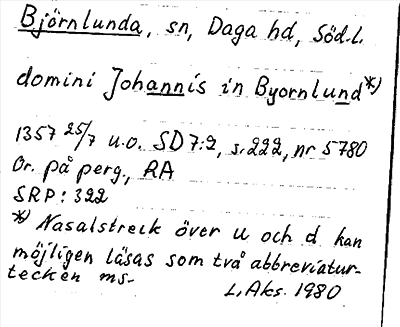 Björnlunda, sn, Daga hd, Söd.l.
domini Johannis in Byornlund*)
1357 25/7 u.o. SD 7:2, s. 222, nr 5780
Or. på perg., RA
SRP: 322
*) Nasalstreck över u och d kan
möjligen läsas som två abbreviatur-
tecken ms-
L, Aks. 1980